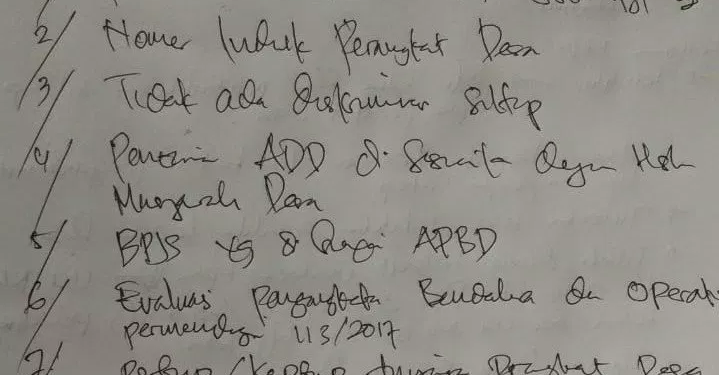 2/ Nomer Induk Perangkat Desa
3/ Tidak ada diskriminasi siltap
4/ ADD di Sesuaikan dengan Hsl
Musyawarah Desa
5/ BPJS yg di APBD
6/ Evaluasi Bendahara dan Operat
permendagri 113/2017
7/ Perangkat Desa